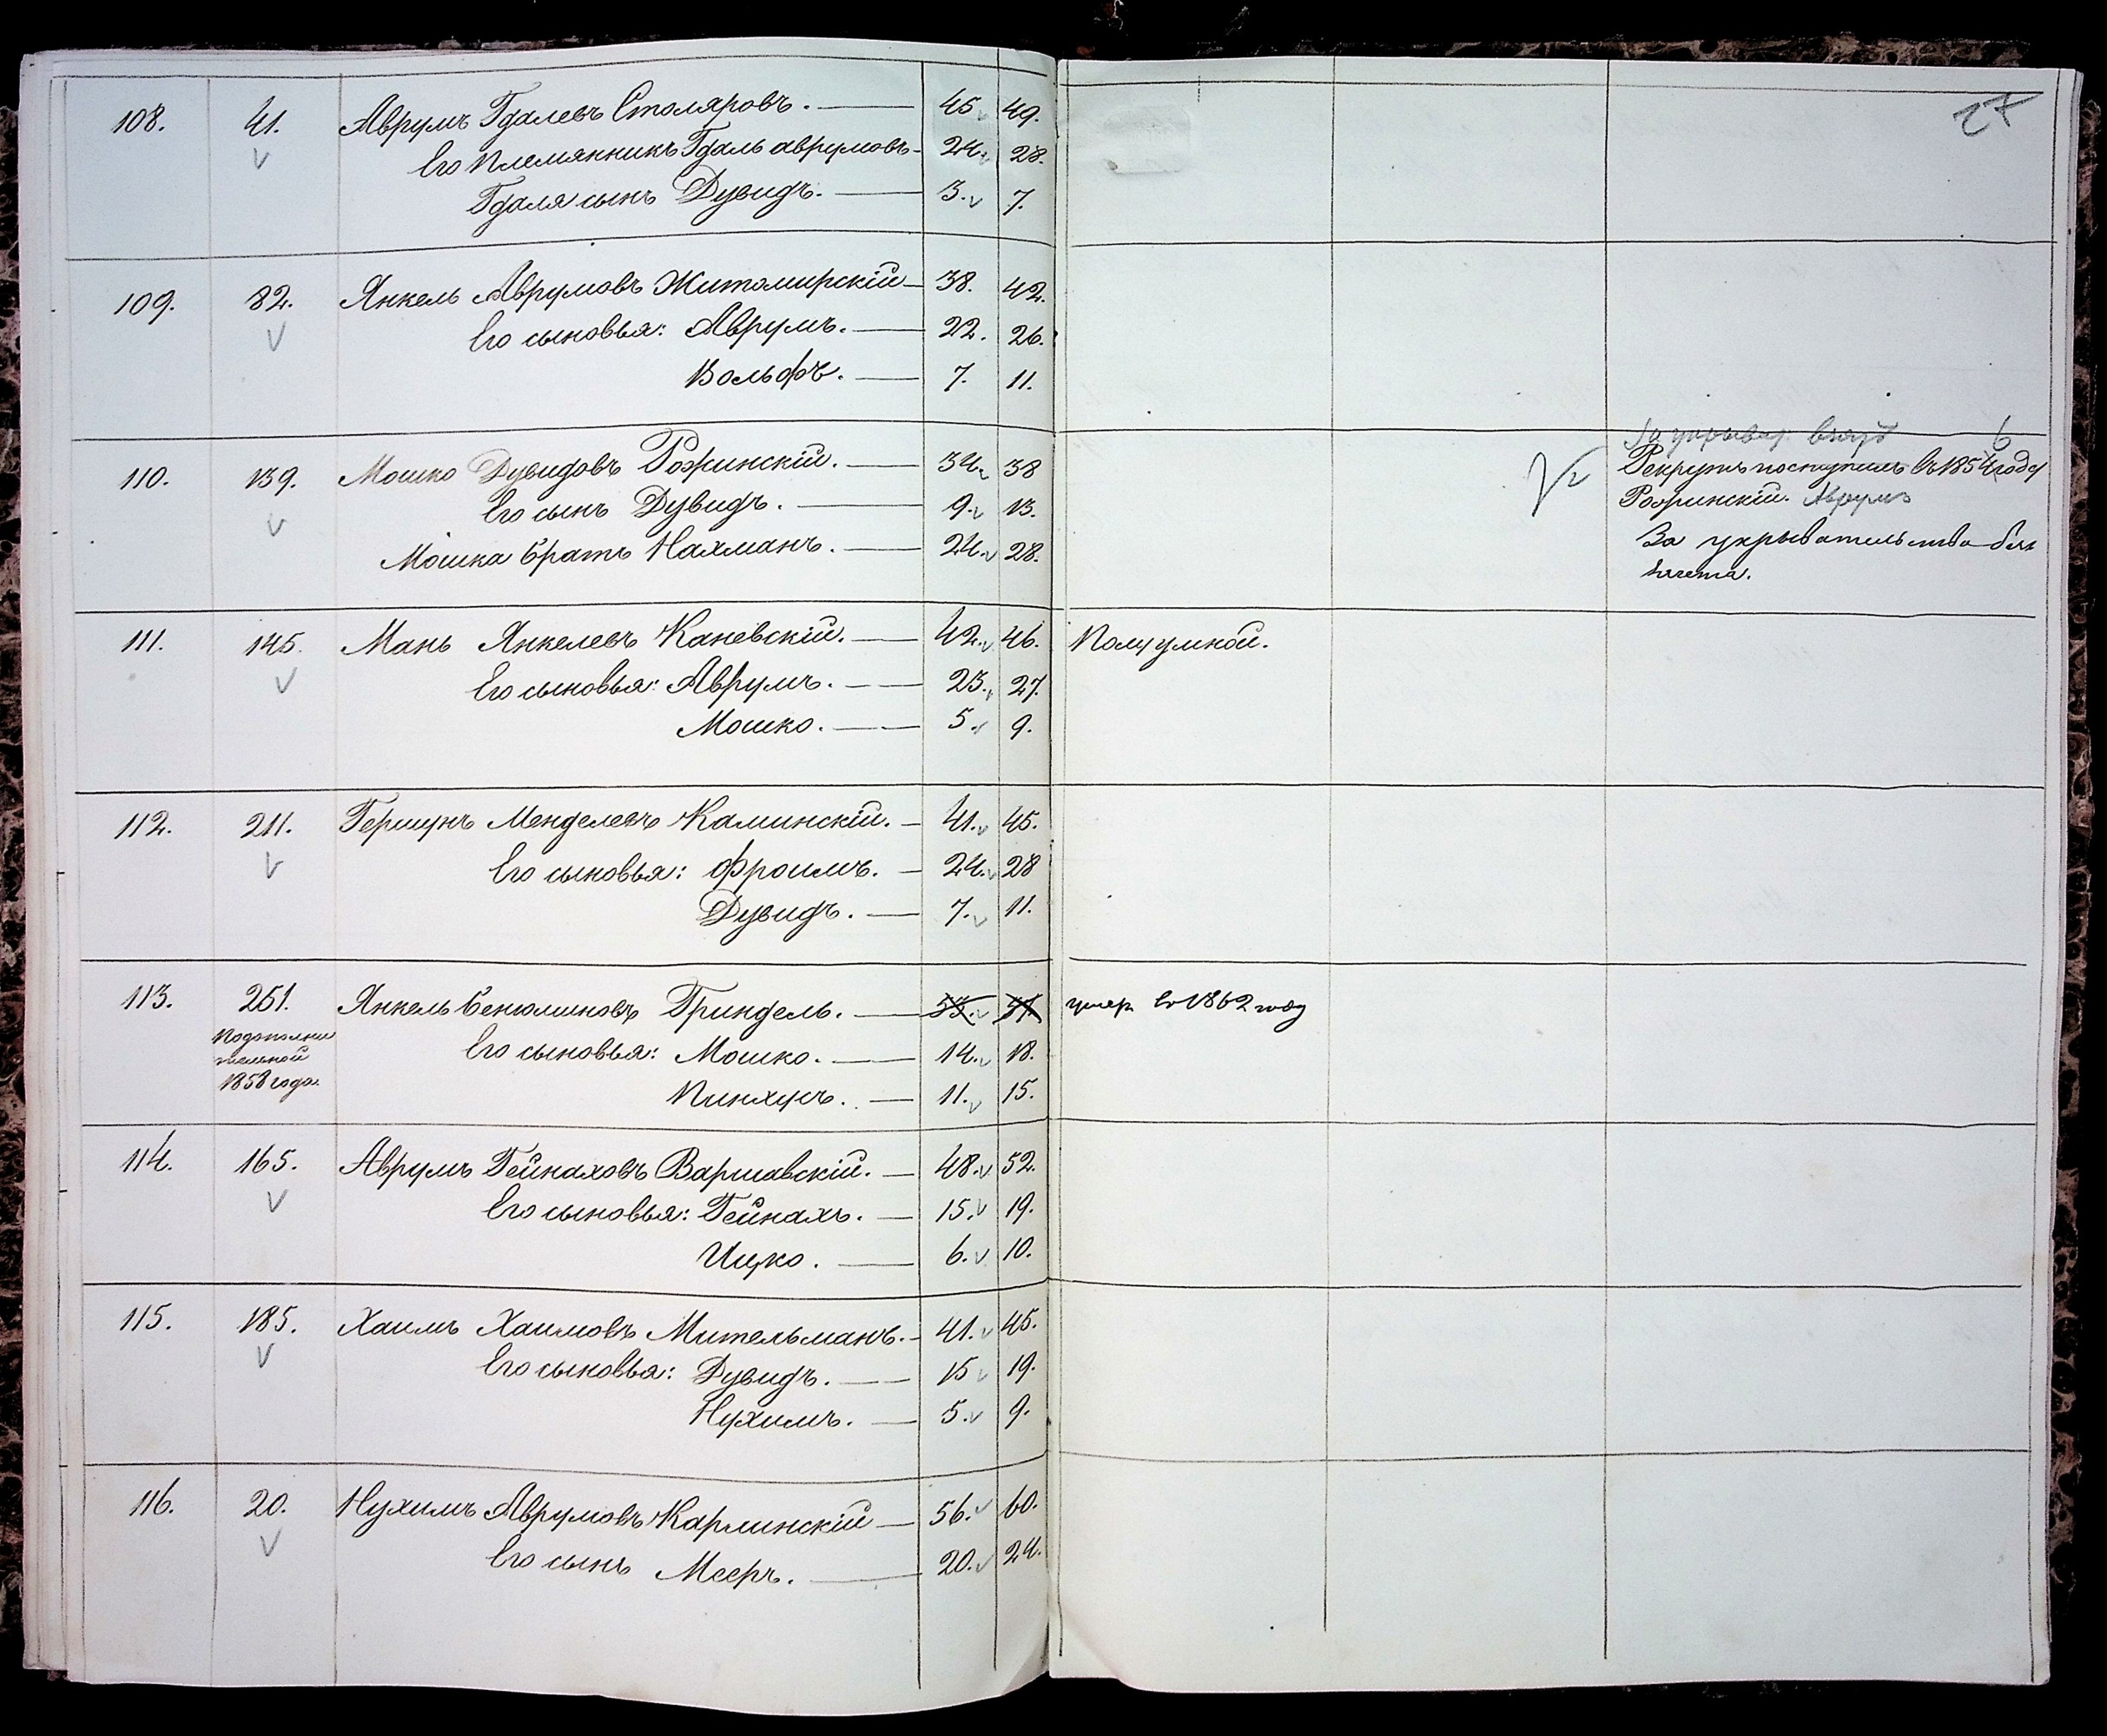 27
108. 41. Аврумъ Гдалевъ Столяровъ. 45. 49.
Его племянникъ Гдаль аврумовъ 24. 28.
Гдаля сынъ Дувидъ. 3. 7.
109. 82. Янкель Аврумовъ Житомирскій 38. 42.
Его сыновья: Аврумъ. 22. 26.
Вольфъ. 7. 11.
За укрыват.
110. 139. Мошко Дувидовъ Рожинскій. 34. 38 Рекрутъ поступилъ въ 1854 году 6
Его сынъ Дувидъ. 9. 13. Рожинскій. Аврумъ
Мошка братъ Нахманъ. 24. 28. За укрывательство безъ
зачета.
111. 145. Мань Янкелевъ Каневскій. 42. 46. Полуумной.
Его сыновья: Аврумъ. 23. 27.
Мошко. 5. 9.
112. 211. Гершунъ Менделевъ Каминскій. 41. 45.
Его сыновья: Фроимъ. 24. 28
Дувидъ. 7. 11.
113. 251. Янкель Бенюминовъ Гриндель. 53. умер въ 1862 году
Подополни
тельной
1858 года.
Его сыновья: Мошко. 14. 18.
Пинхусъ. 11. 15.
114. 165. Аврумъ Гейнаховъ Варшавскій. 48. 52.
Его сыновья: Гейнахъ. 15. 19.
Ицко. 6. 10.
115. 185. Хаимъ Хаимовъ Мительманъ. 41. 45.
Его сыновья: Дувидъ. 15 19.
Нухимъ. 5. 9.
116. 20. Нухимъ Аврумовъ Карлинскій 56. 60.
Его сынъ Мееръ. 20. 24.